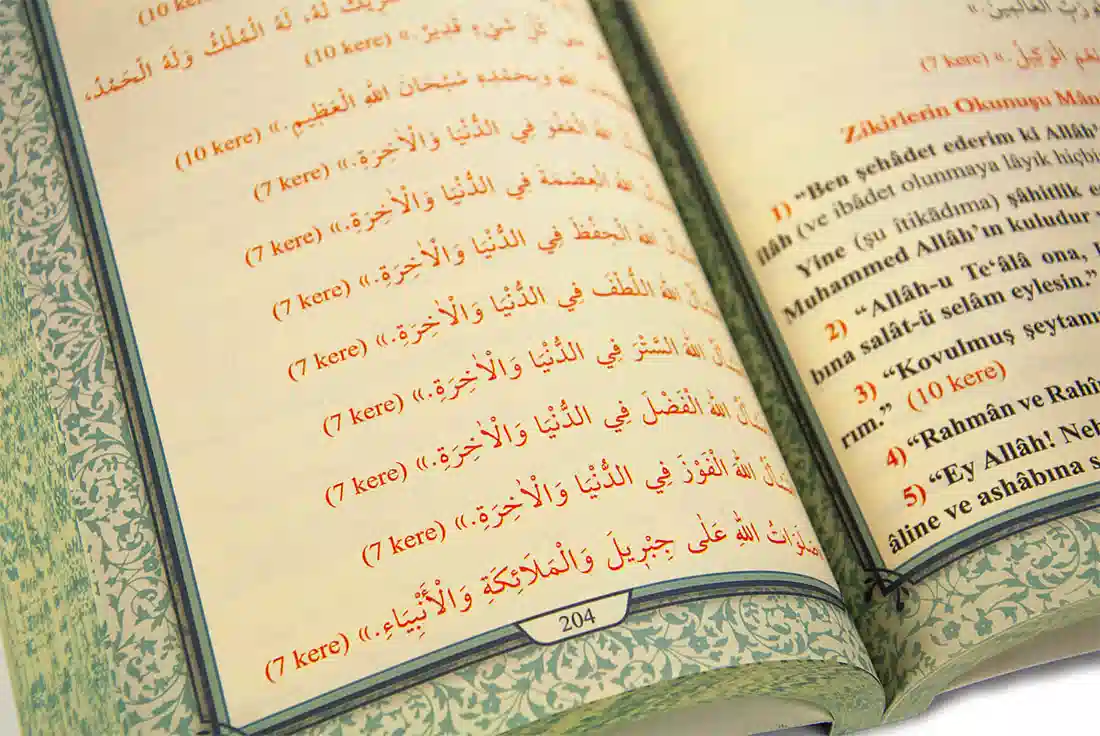 (10
شَرِيكَ لَهُ، لَهُ الْمُلْكُ وَلَهُ الْحَمْدُ،
كُلِّ شَيْءٍ قَدِيرٌ.» (10 kere)
اللهِ وَبِحَمْدِهِ سُبْحَانَ اللهِ الْعَظِيمِ.» (10 kere)
اللهَ الْعَفْوَ فِي الدُّنْيَا وَالْاٰخِرَةِ.» (7 kere)
اللهَ الْعِصْمَةَ فِي الدُّنْيَا وَالْاٰخِرَةِ.» (7 kere)
اللهَ الْحِفْظَ فِي الدُّنْيَا وَالْاٰخِرَةِ.» (7 kere)
اللهَ اللُّطْفَ فِي الدُّنْيَا وَالْاٰخِرَةِ.» (7 kere)
اللهَ السَّتْرَ فِي الدُّنْيَا وَالْاٰخِرَةِ.» (7 kere)
اللهَ الْفَضْلَ فِي الدُّنْيَا وَالْاٰخِرَةِ.» (7 kere)
اللهَ الْفَوْزَ فِي الدُّنْيَا وَالْاٰخِرَةِ.» (7 kere)
صَلَوَاتُ اللهِ عَلٰى جِبْرِيلَ وَالْمَلَائِكَةِ وَالْأَنْبِيَاءِ.» (7 kere)
204
الْعَالَمِينَ.»
نِعْمَ الْوَكِيلُ.» (7 kere)
Zikirlerin Okunuşu
1) “Ben şehâdet ederim ki Allâh’
ilâh (ve ibâdet olunmaya lâyik
Yine (şu îtikādıma) şâhitlik
Muhammed Allâh’ın kuludur
2) “Allâh-u Te‘âlâ ona,
bına salât-ü selâm eylesin.”
3) “Kovulmuş
rım.” (10 kere)
4) “Rahmân ve
5) “Ey Allâh!
âline ve ashâbına